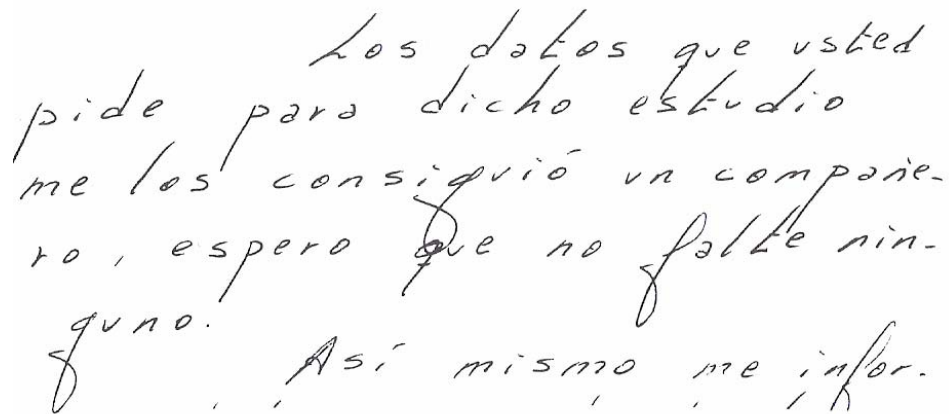 Los datos que usted
pide para dicho estudio
me los consiguió un compañe-
ro, espero que no falte nin-
guno.
Así mismo me infor-